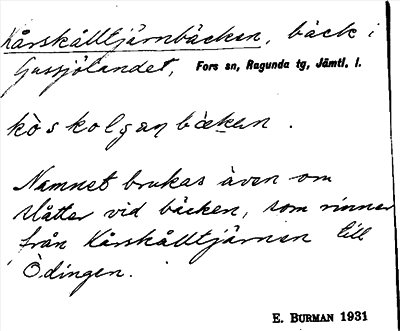 Kårskålltjärnbäcken, bäck i
Gussjölandet, Fors sn, Ragunda tg, Jämtl. l.
Namnet brukas även om
slåtter vid bäcken, som rinner
från Kårskålltjärnen till
Ödingen.
E. BURMAN 1931